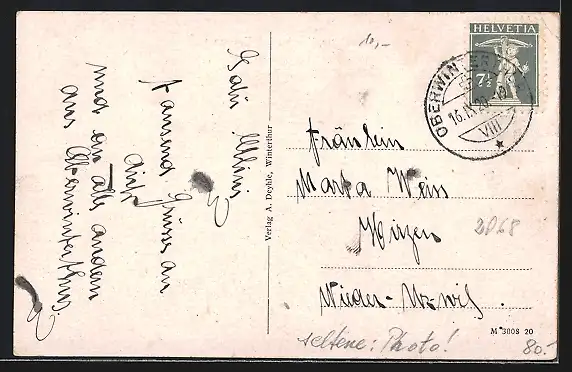 tausend Grüsse an
dich
und an alle andern
aus Oberwinterthur.
Verlag A. Deyhle, Winterthur
10,-
HELVETIA
7½
OBERWINTERTHUR
16.IX.20
VIII
Fräulein
Marta Weiss
Hirzen
Nieder-Uzwil.
2068
M 3008 20
seltene: Photo!
80.-